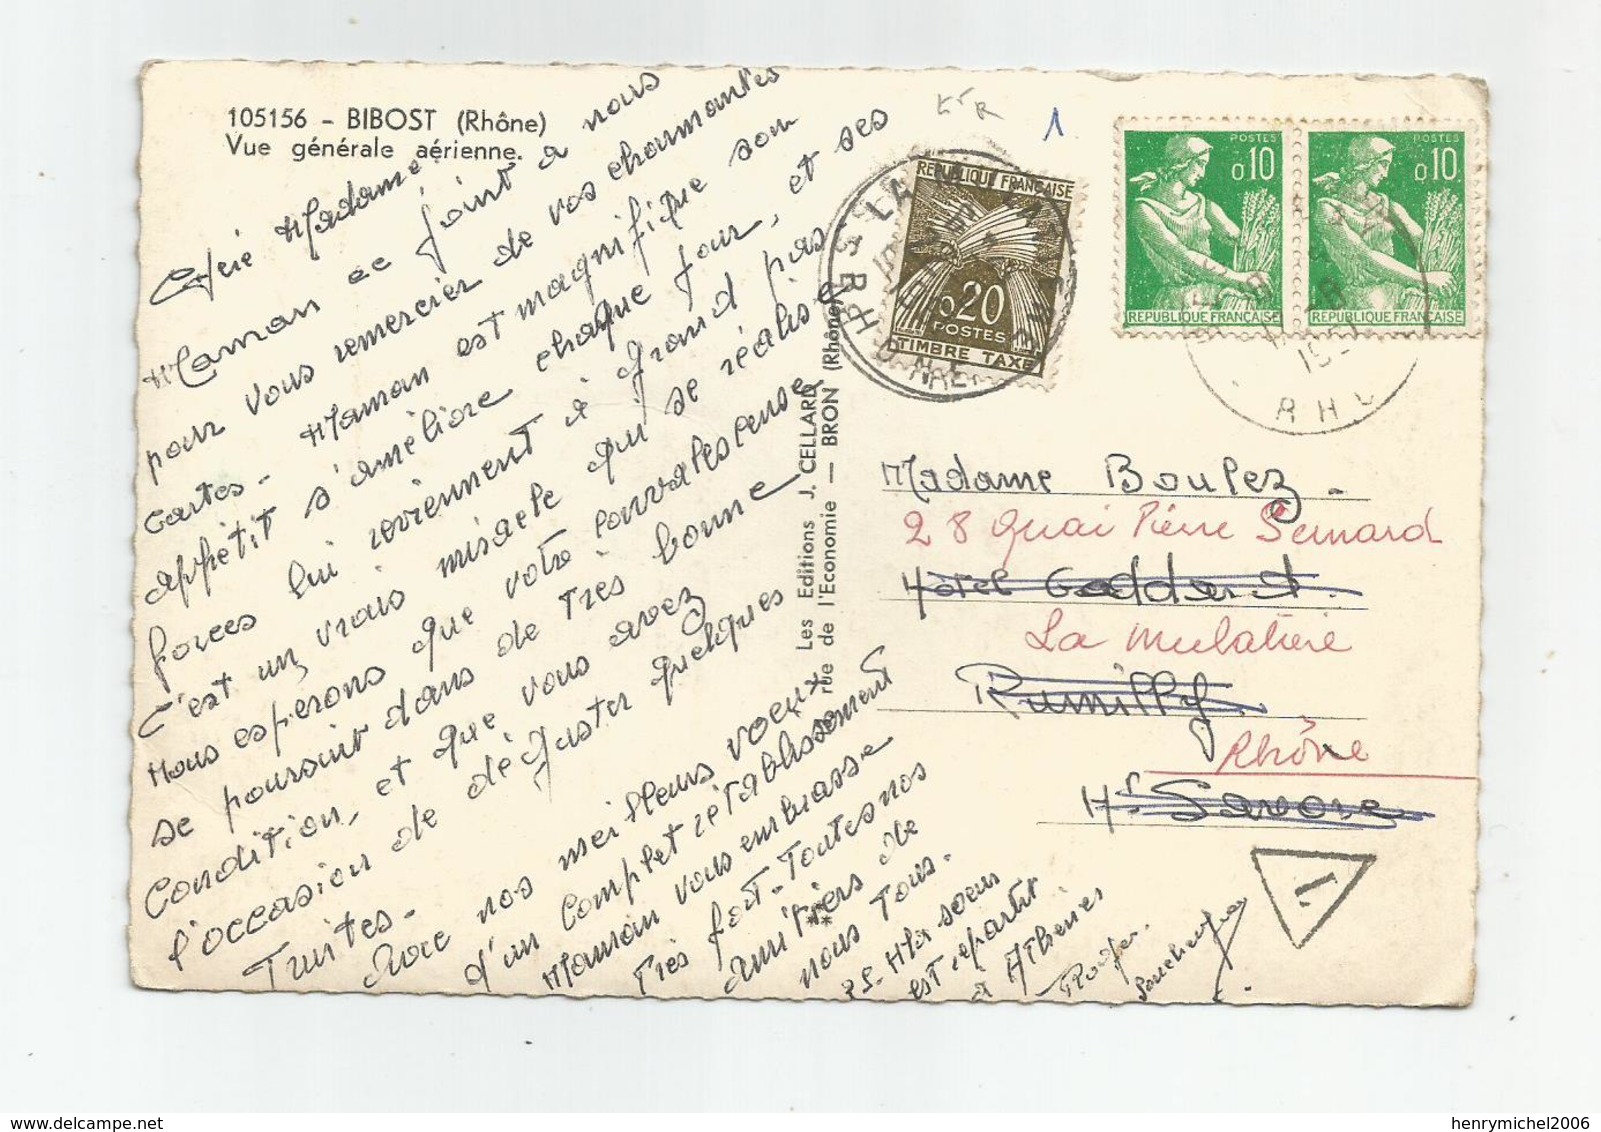 105156 - BIBOST (Rhône)
Vue générale aérienne.
Chère Madame
Maman se joint à nous
pour vous remercier de vos charmantes
cartes - Maman est magnifique son
appétit s'améliore chaque jour, et ses
forces lui reviennent à grand pas
c'est un vrais miracle qui se réalise
Nous espérons que votre convalescense
se poursuit dans de très bonne
Condition, et que vous avez
l'occasion de déguster quelques
Truites -
Avec nos meilleurs voeux
d'un complet rétablissement
Maman vous embrasse
très fort - Toutes nos
amitiers de
nous Tous.
PS - Ma soeur
est repartit
à Athènes
Roger
Les Editions J. CELLARD
rue de l'Economie - BRON (Rhône)
1
REPUBLIQUE FRANÇAISE
0,20
POSTES
TIMBRE TAXE
RHONE
POSTES
0,10
REPUBLIQUE FRANÇAISE
POSTES
0,10
REPUBLIQUE FRANÇAISE
15-
RHO
Madame Boulez -
28 Quai Pierre Semard
Hôtel
La Mulatière
Rumilly
Rhône
Hte Savoie
henrymichel2006